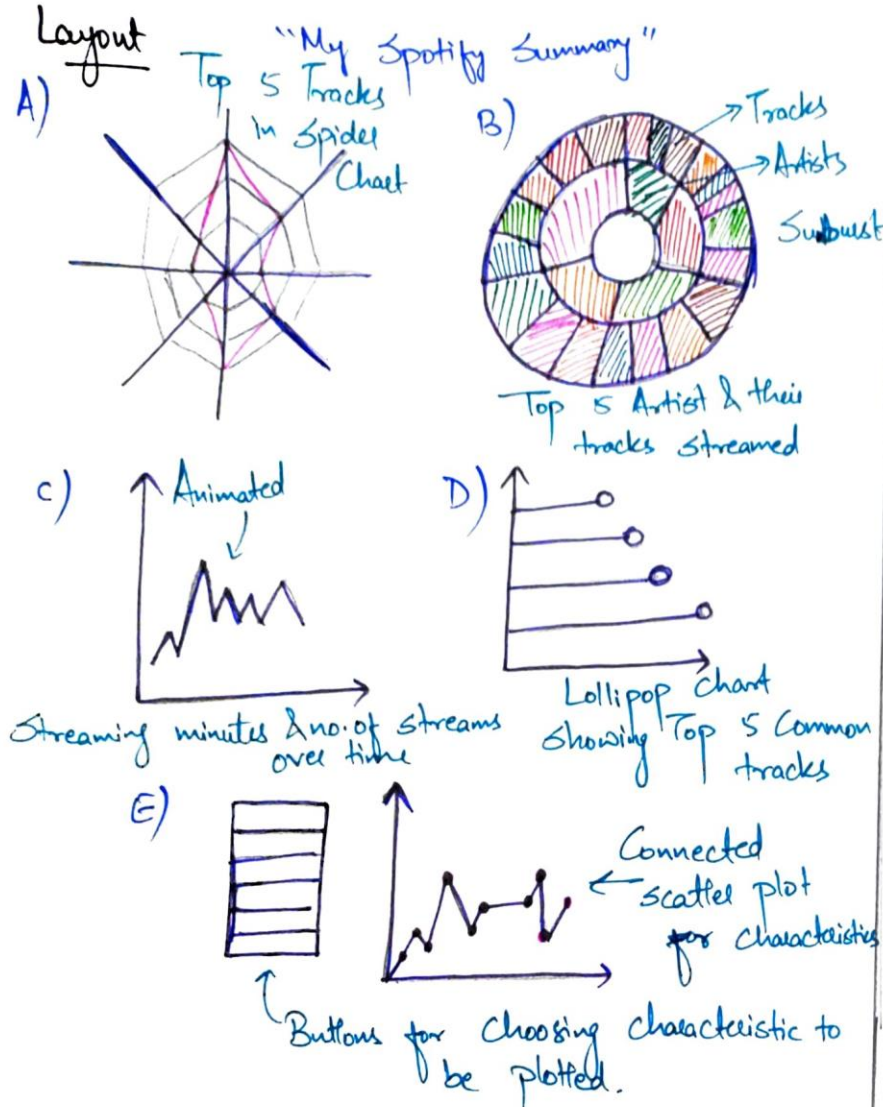 Layout
"My Spotify Summary"
A)
Top 5 Tracks
in Spider
Chart
B)
Tracks
Artists
Sunburst
Top 5 Artist & their
tracks streamed
C)
Animated
Streaming minutes & no. of streams
over time
D)
Lollipop chart
showing Top 5 Common
tracks
E)
Connected
scatter plot
for characteristics
Buttons for choosing characteristic to
be plotted.